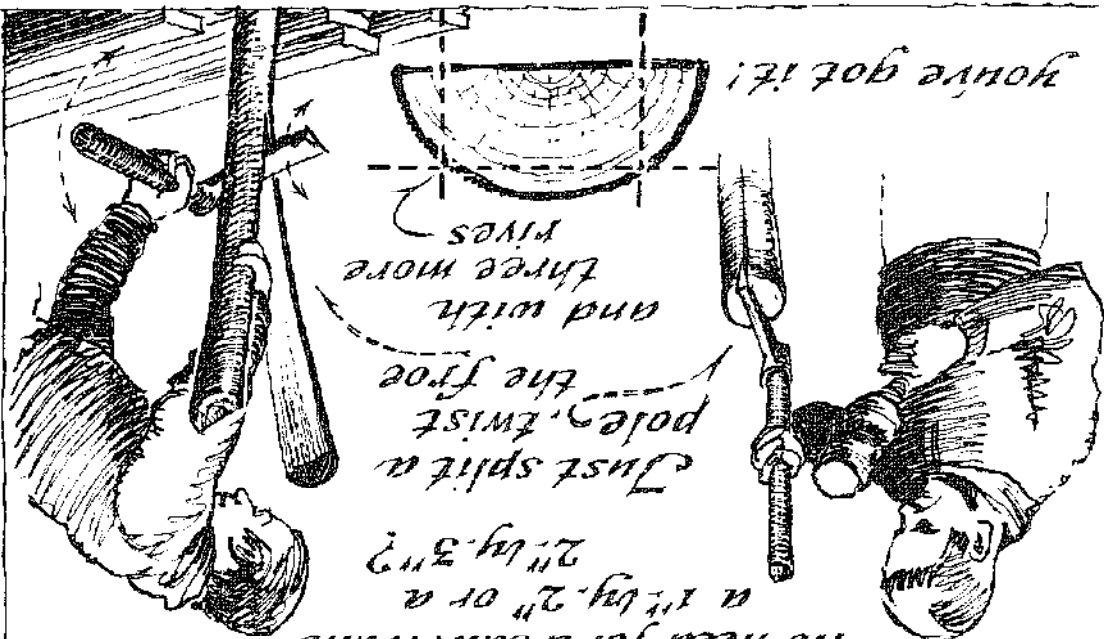 need for a
a 1"-by-2" or a
2"-by-3"?
Just split a
pole, twist
the froe
and with
three more
rives
you've got it!